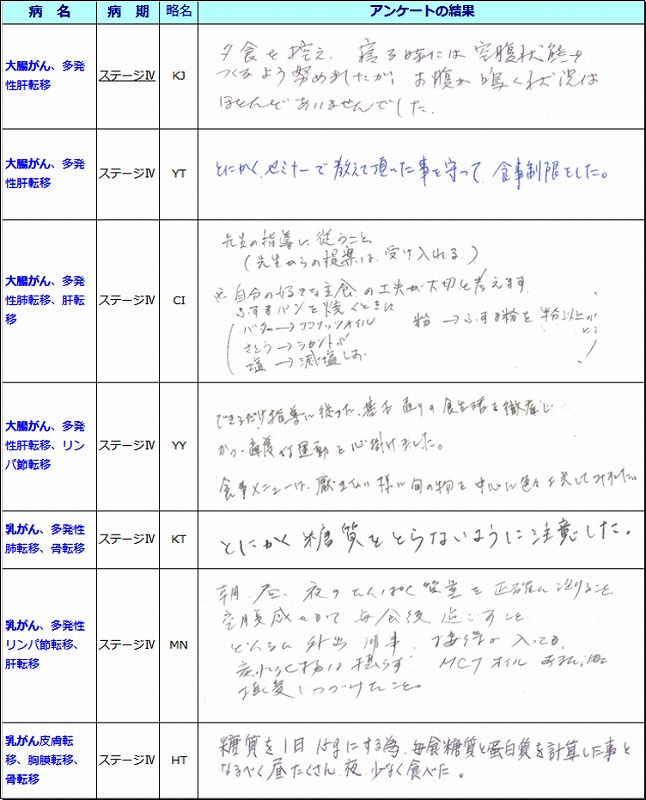 病　名
病　期
略名
アンケートの結果
大腸がん、多発
性肝転移
ステージⅣ
KJ
夕食を控え、寝る時には空腹状態を
つくるよう努めましたが、お腹が鳴く状況は
ほとんどありませんでした。
大腸がん、多発
性肝転移
ステージⅣ
YT
とにかく、セミナーで教えて頂いた事を守って、食事制限をした。
大腸がん、多発
性肺転移、肝転
移
ステージⅣ
CI
先生の指導に従うこと
(先生からの提案は、受け入れる)
※自分の好きな主食の工夫が大切と考えます
ふすまパンを焼くときに
バター→ココナッツオイル
粉→ふすま粉を半分以上
さとう→ラカントが
塩→減塩しお
大腸がん、多発
性肝転移、リン
パ節転移
ステージⅣ
YY
できるだけ指導に従った、基本通りの食生活を徹底し
かつ、適度な運動を心掛けました。
食事メニューは、厭きない様に旬の物を中心に色々工夫してみました
乳がん、多発性
肺転移、骨転移
ステージⅣ
KT
とにかく糖質をとらないように注意した。
乳がん、多発性
リンパ節転移、
肝転移
ステージⅣ
MN
朝、昼、夜のたんぱく質量を正確に
空腹感 毎食後過ごすこと
どんなに外出、用事、接待が入っても、
炭水化物は摂らず MCTオイル
つづけたこと
乳がん皮膚転
移、胸膜転移、
骨転移
ステージⅣ
HT
糖質を1日15gにする為、毎食糖質と蛋白質を計算した事と
なるべく昼たくさん、夜、少なく食べた。